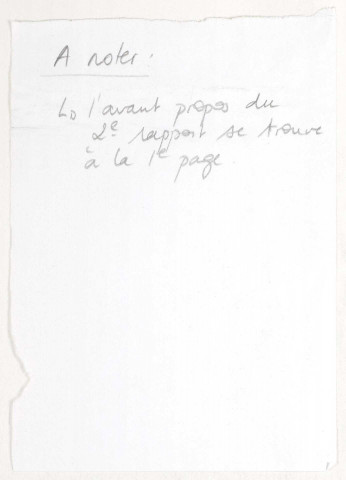 A noter.
↳ l'avant propos du
2e rapport se trouve
à la 1e page.